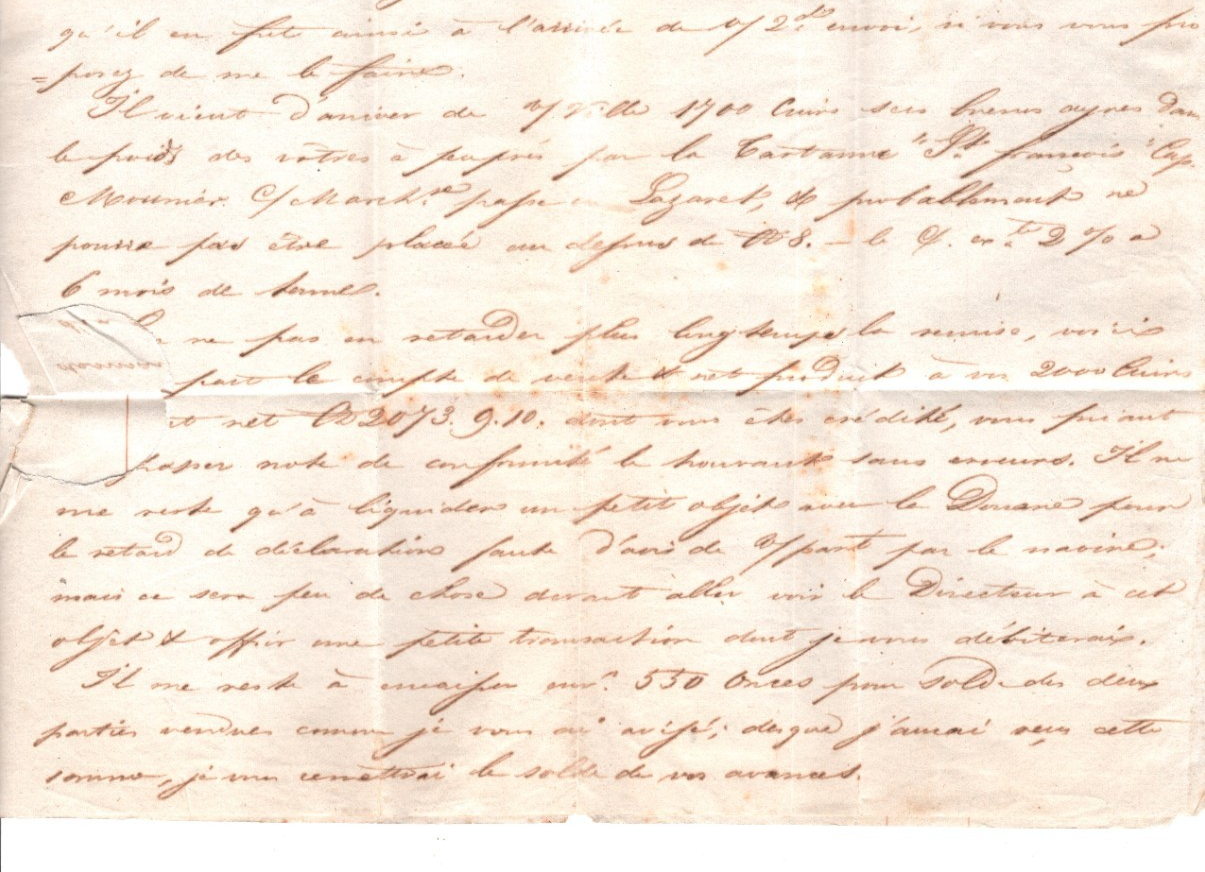 qu'il en fut ainsi à l'arrivée de v/ 2d. envoi, si vous vous pro
=posez de me le faire.
Il vient d'arriver de v/ ville 1700 Cuirs secs buenos ayres dans
le poids des votres à peuprés par la Tartanne "St. françois" Cap.
Mounier. C/ March.se passe Lazaret, & probablement ne
pourra pas être placée au dessus de 8. — le d. ex.te 2 % a
6 mois de terme.
ne pas en retarder plus longtemps la remise, voici
part le compte de vente & net produit à vos 2000 Cuirs
net 2073. 9. 10. dont vous êtes crédité, vous priant
passer note de conformité le trouvant sans erreurs. Il ne
me reste qu'à liquider un petit objét avec la Douane pour
le retard de déclaration faute d'avis de v/ part par le navire;
mais ce sera peu de chose devant aller voir le Directeur à cet
objét & offrir une petite transaction dont je vous débiterais.
Il me reste à encaisser env.n 550 Onces pour solde des deux
parties vendues comme je vous ai avisé; desque j'aurai reçu cette
somme, je vous remettrai le solde de vos avances.